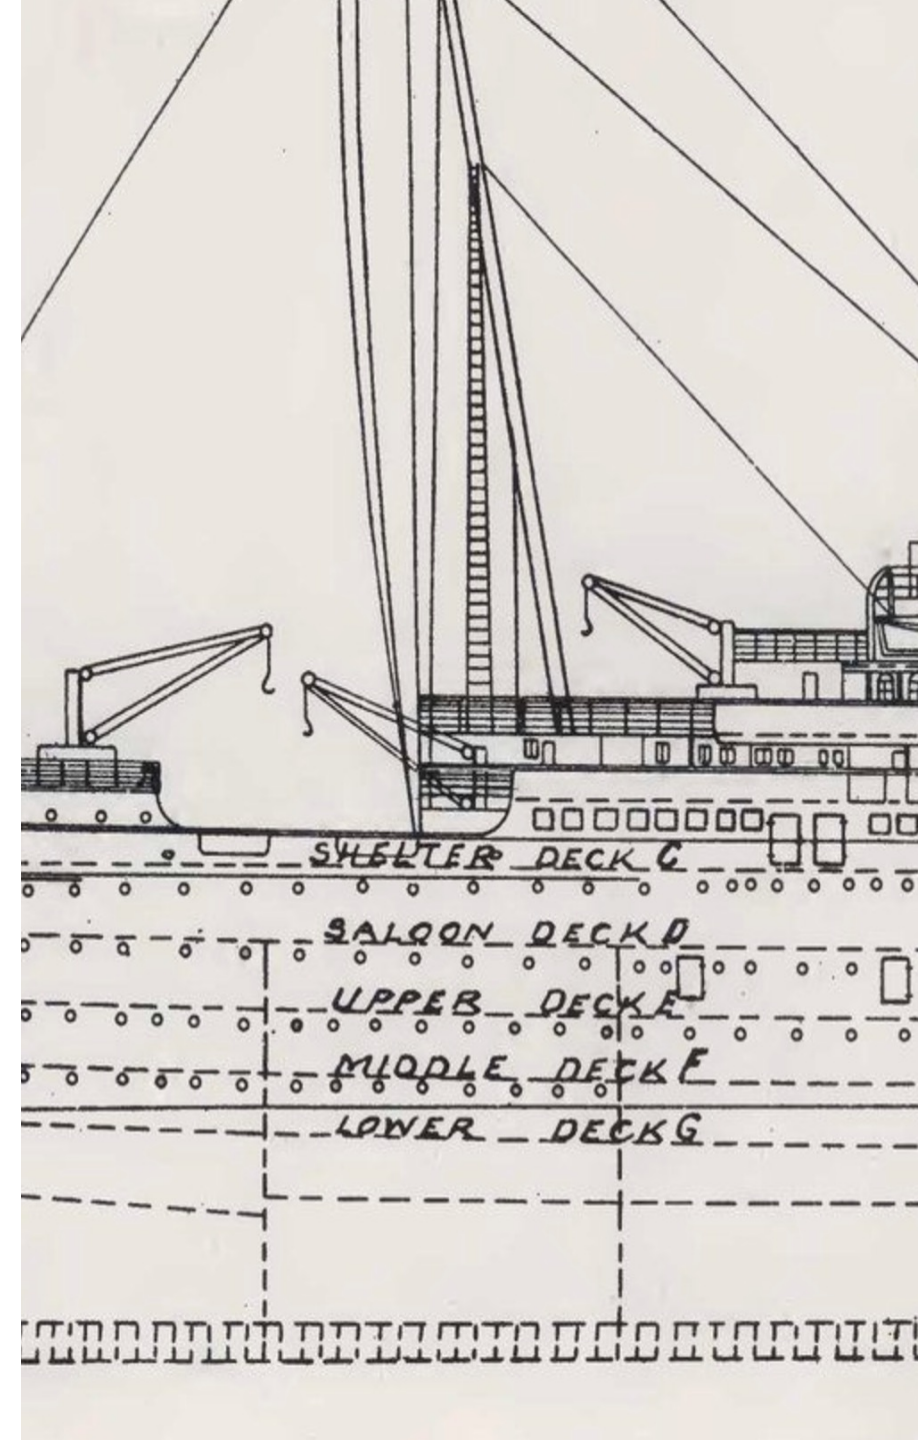 SHELTER DECK C
SALOON DECK D
UPPER DECK E
MIDDLE DECK F
LOWER DECK G